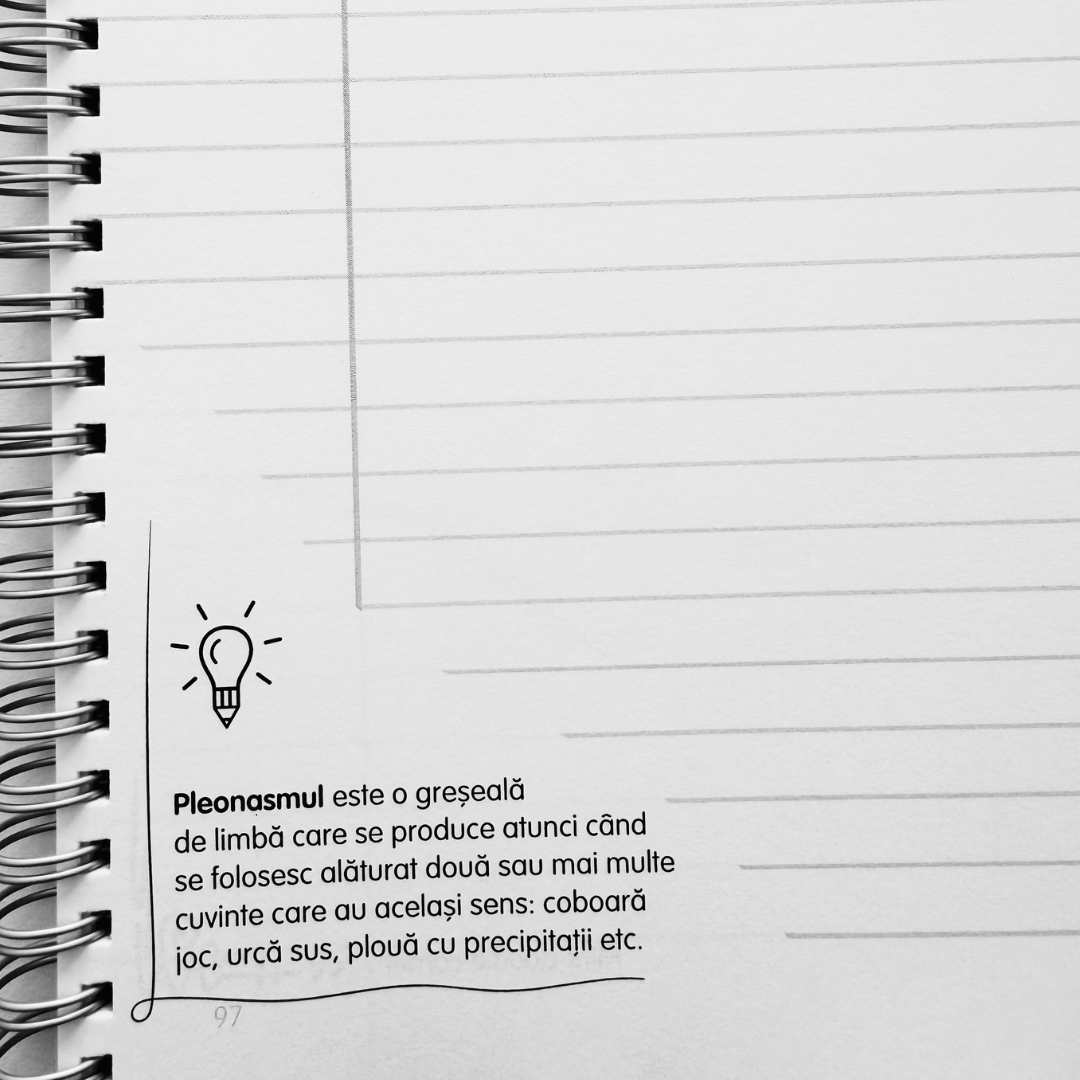 Pleonasmul este o greșeală
de limbă care se produce atunci când
se folosesc alăturat două sau mai multe
cuvinte care au același sens: coboară
joc, urcă sus, plouă cu precipitații etc.
97